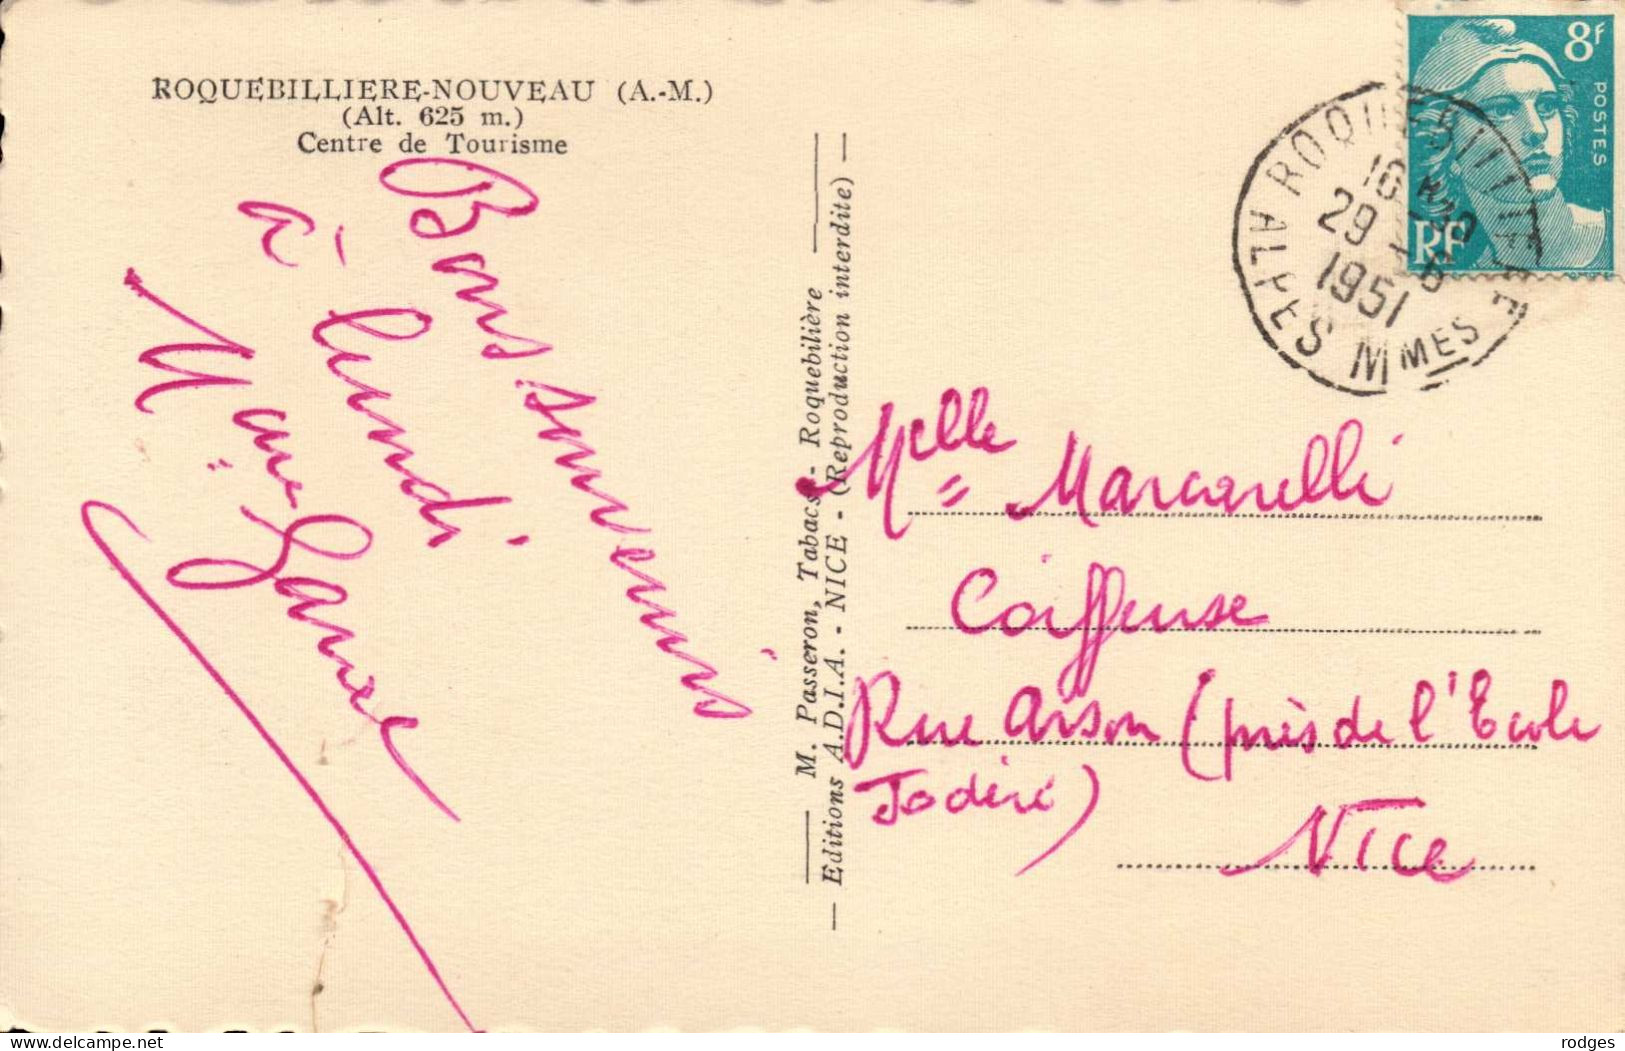 ROQUEBILLIERE-NOUVEAU (A.-M.)
(Alt. 625 m.)
Centre de Tourisme
Bons souvenirs
à lundi.
M. Passeron, Tabacs - Roquebilière
Editions A.D.I.A. - NICE - (Reproduction interdite)
8F
POSTES
RF
ROQUEBILLIERE
29 - 6
1951
ALPES MMES
Melle Marcarelli
Coiffeuse
Rue Arson (près de l'Ecole
Nice
rodges